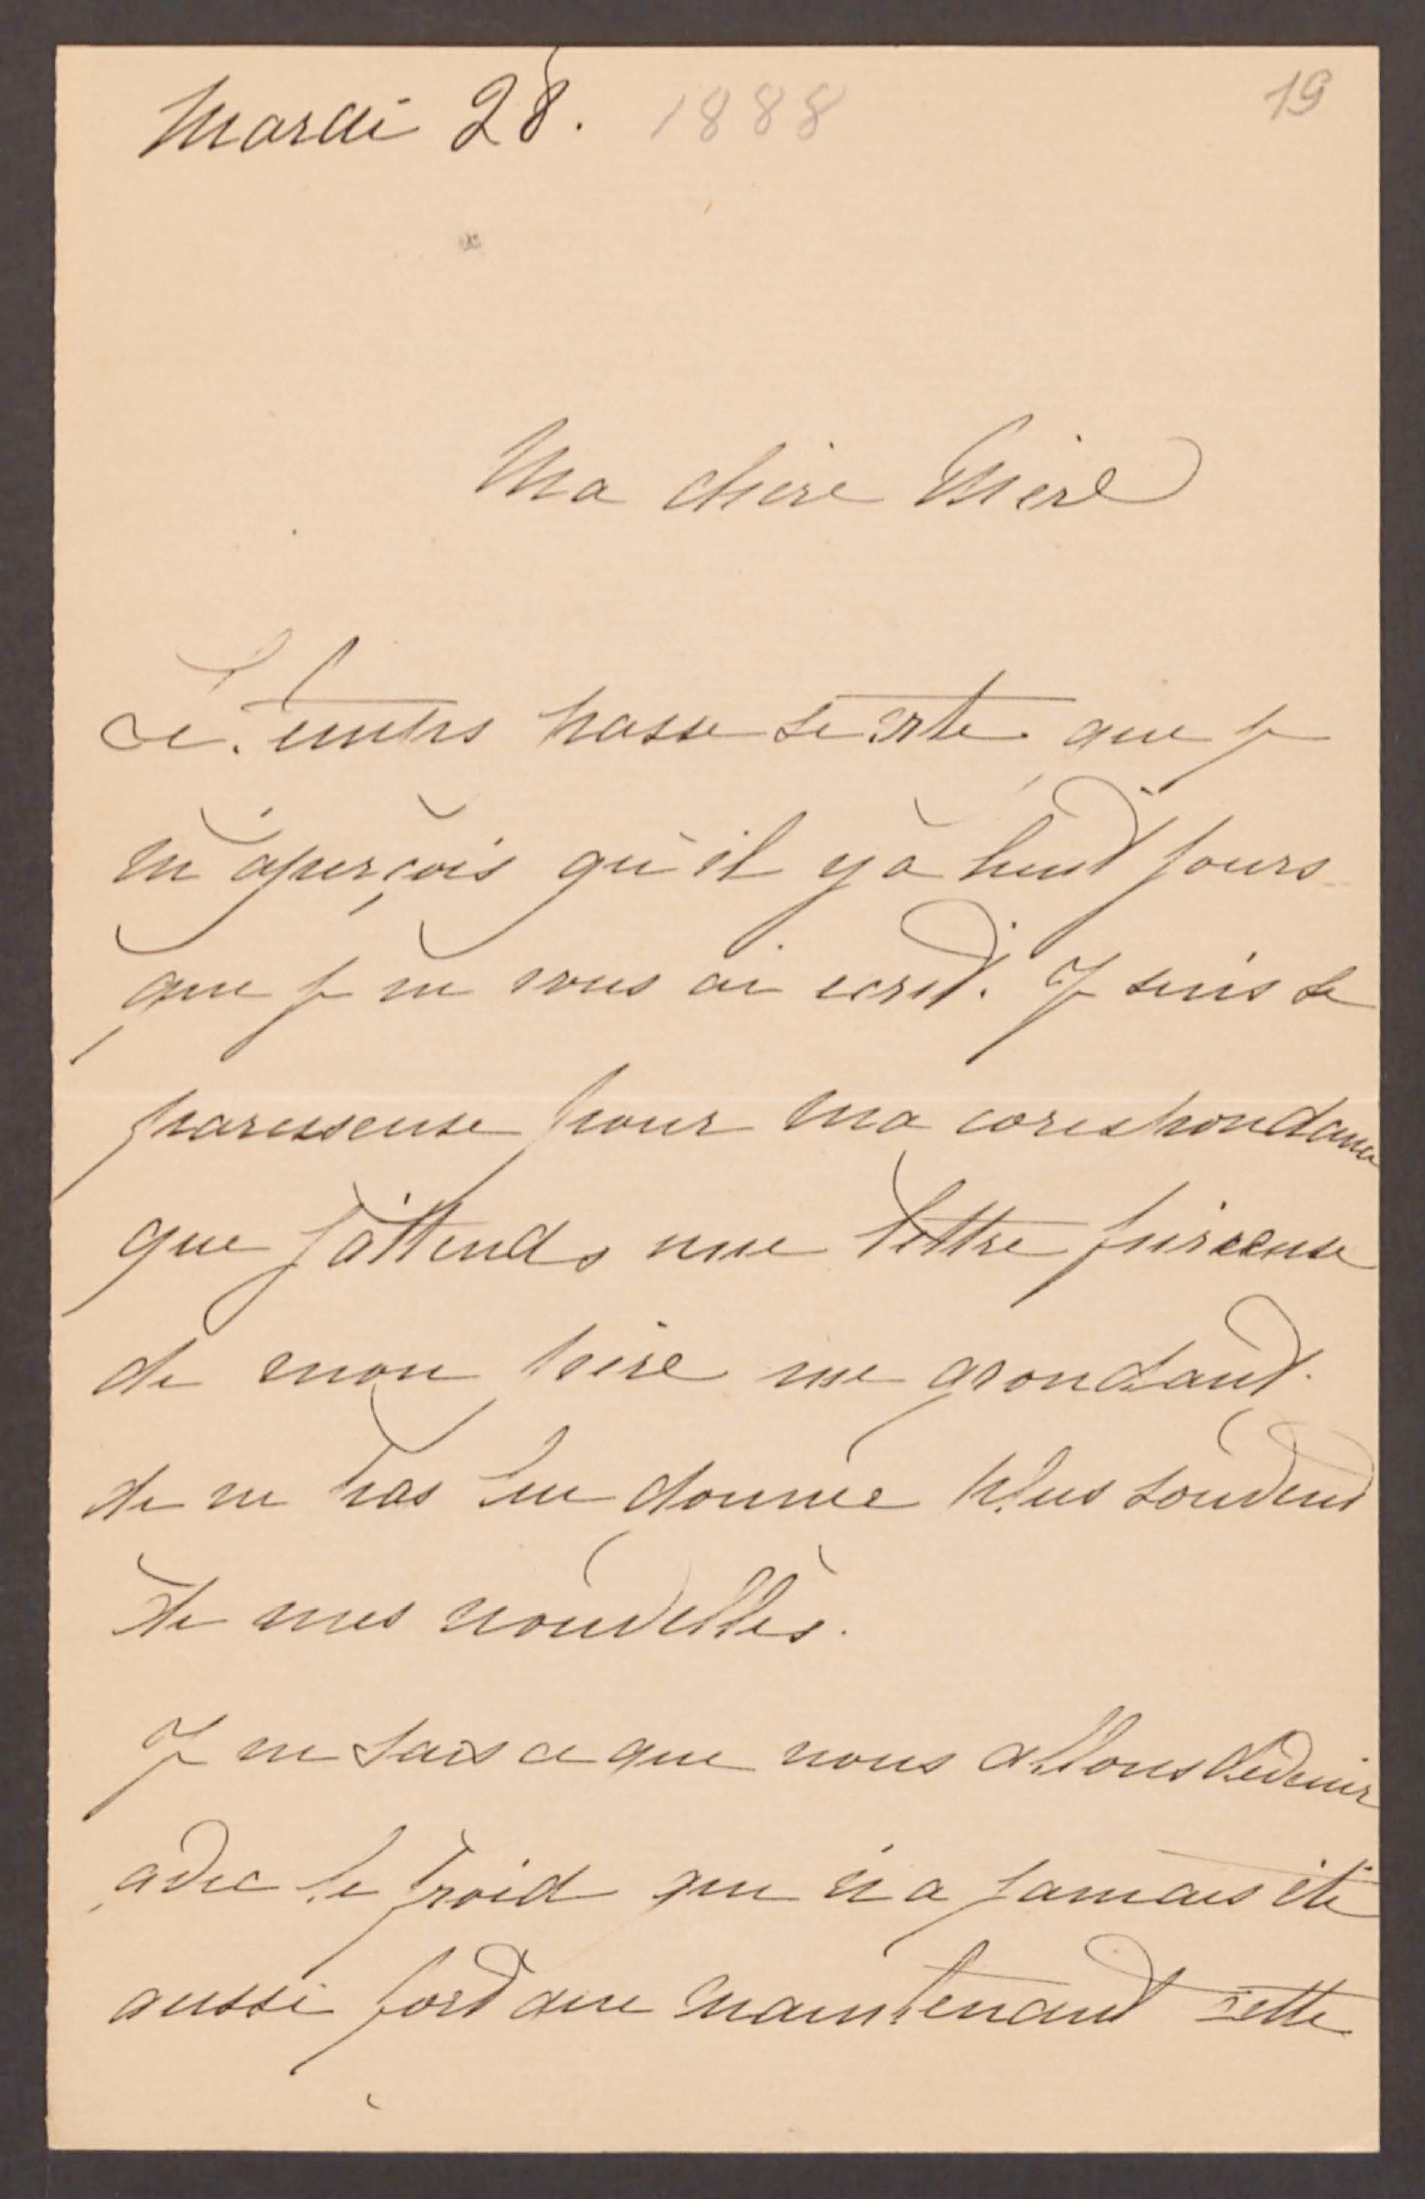 Mardi 28. 1888
19
Ma chère Mère
Le temps passe si vite que je
m'aperçois qu'il y a huit jours
que je ne vous ai écrit. Je suis si
paresseuse pour ma corespondance
que j'attends une lettre furieuse
de mon père me grondant
de ne pas lui donner plus souvent
de mes nouvelles.
Je ne sais ce que nous allons devenir
avec le froid qui n'a jamais été
aussi fort que maintenant cette